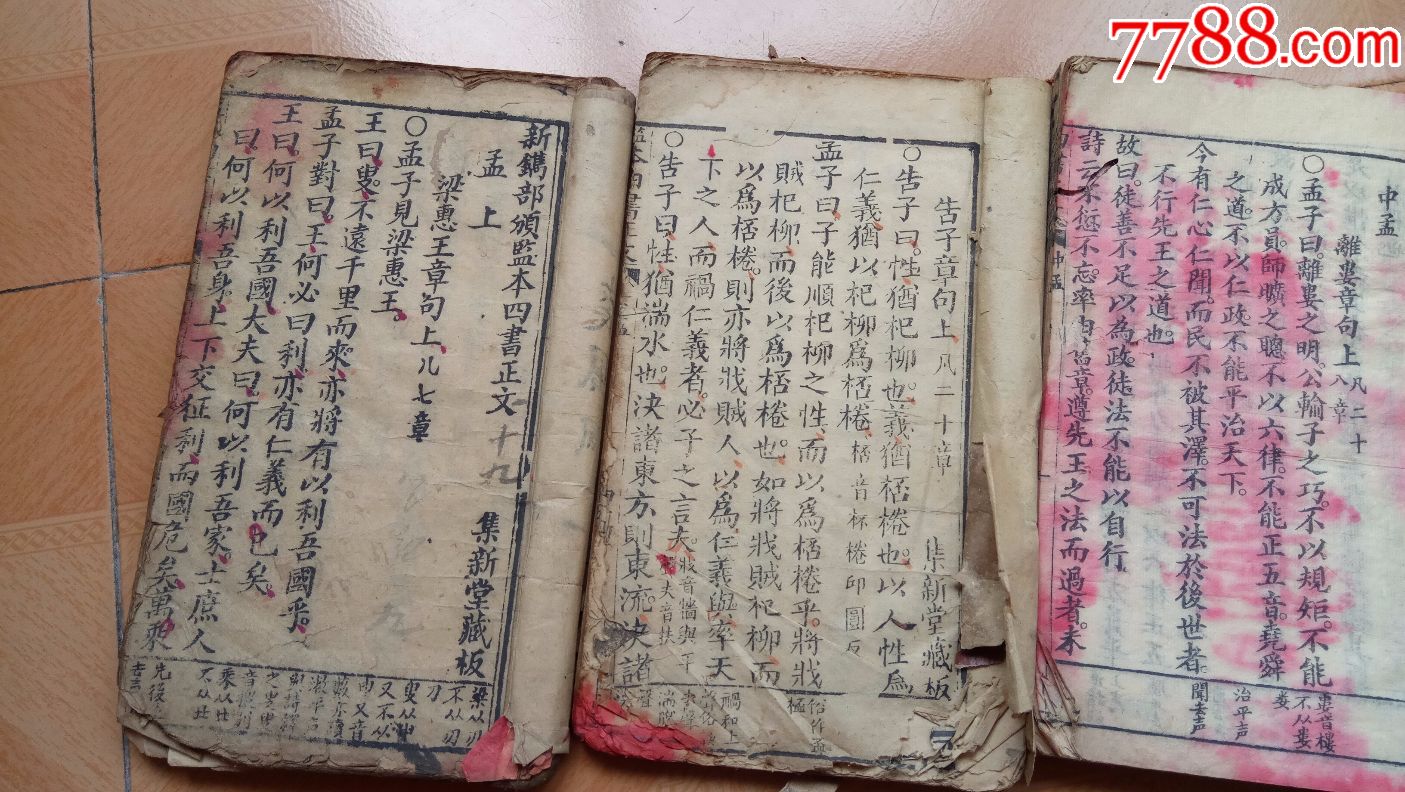 7788.com
新鐫部頒監本四書正文 十九 集新堂藏板
孟上
梁惠王章句上凡七章
○孟子見梁惠王。
王曰。叟。不遠千里而來。亦將有以利吾國乎。
孟子對曰。王何必曰利。亦有仁義而已矣。
王曰何以利吾國。大夫曰。何以利吾家。士庶人
曰何以利吾身。上下交征利。而國危矣。萬乘
梁从刃
不从刅
告子章句上 凡二十章 集新堂藏板
○告子曰。性猶杞柳也。義猶桮棬也。以人性爲
仁義。猶以杞柳爲桮棬。桮音杯棬印圓反
孟子曰。子能順杞柳之性。而以爲桮棬乎。將戕
賊杞柳。而後以爲桮棬也。如將戕賊杞柳而
以爲桮棬。則亦將戕賊人以爲仁義與。率天
下之人。而禍仁義者。必子之言夫。戕音牆與平
聲夫音扶
○告子曰。性猶湍水也。決諸東方。則東流。決諸
中孟
離婁章句上凡二十
八章
○孟子曰。離婁之明。公輸子之巧。不以規矩。不能
成方員。師曠之聰。不以六律。不能正五音。堯舜
之道。不以仁政。不能平治天下。
今有仁心仁聞。而民不被其澤。不可法於後世者。
不行先王之道也
故曰。徒善不足以爲政。徒法不能以自行
詩云。不愆不忘。率由舊章。遵先王之法而過者。未
婁音樓
不从婁
治平声
聞去声